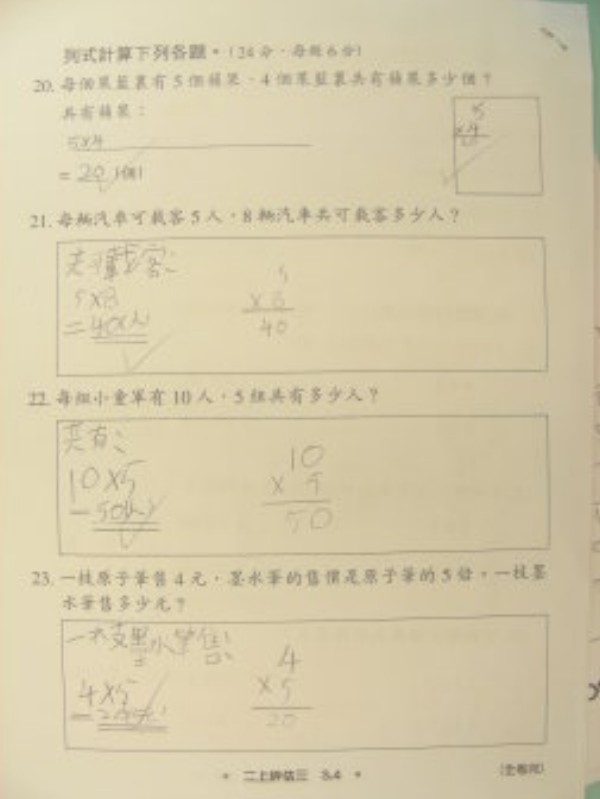 列式計算下列各題。(24分，每題6分)
20. 每個果籃裏有5個蘋果，4個果籃裏共有蘋果多少個？
共有蘋果：
5
×4
20
5×4
= 20 (個)
21. 每輛汽車可載客5人，8輛汽車共可載客多少人？
共可載客：
5×8
=40(人)
5
×8
40
22. 每組小童軍有10人，5組共有多少人？
共有：
10×5
=50(人)
10
×5
50
23. 一枝原子筆售4元，墨水筆的售價是原子筆的5倍。一枝墨
水筆售多少元？
一枝墨水筆售：
4×5
=20(元)
4
×5
20
• 二上評估三 3.4 •
(全卷完)